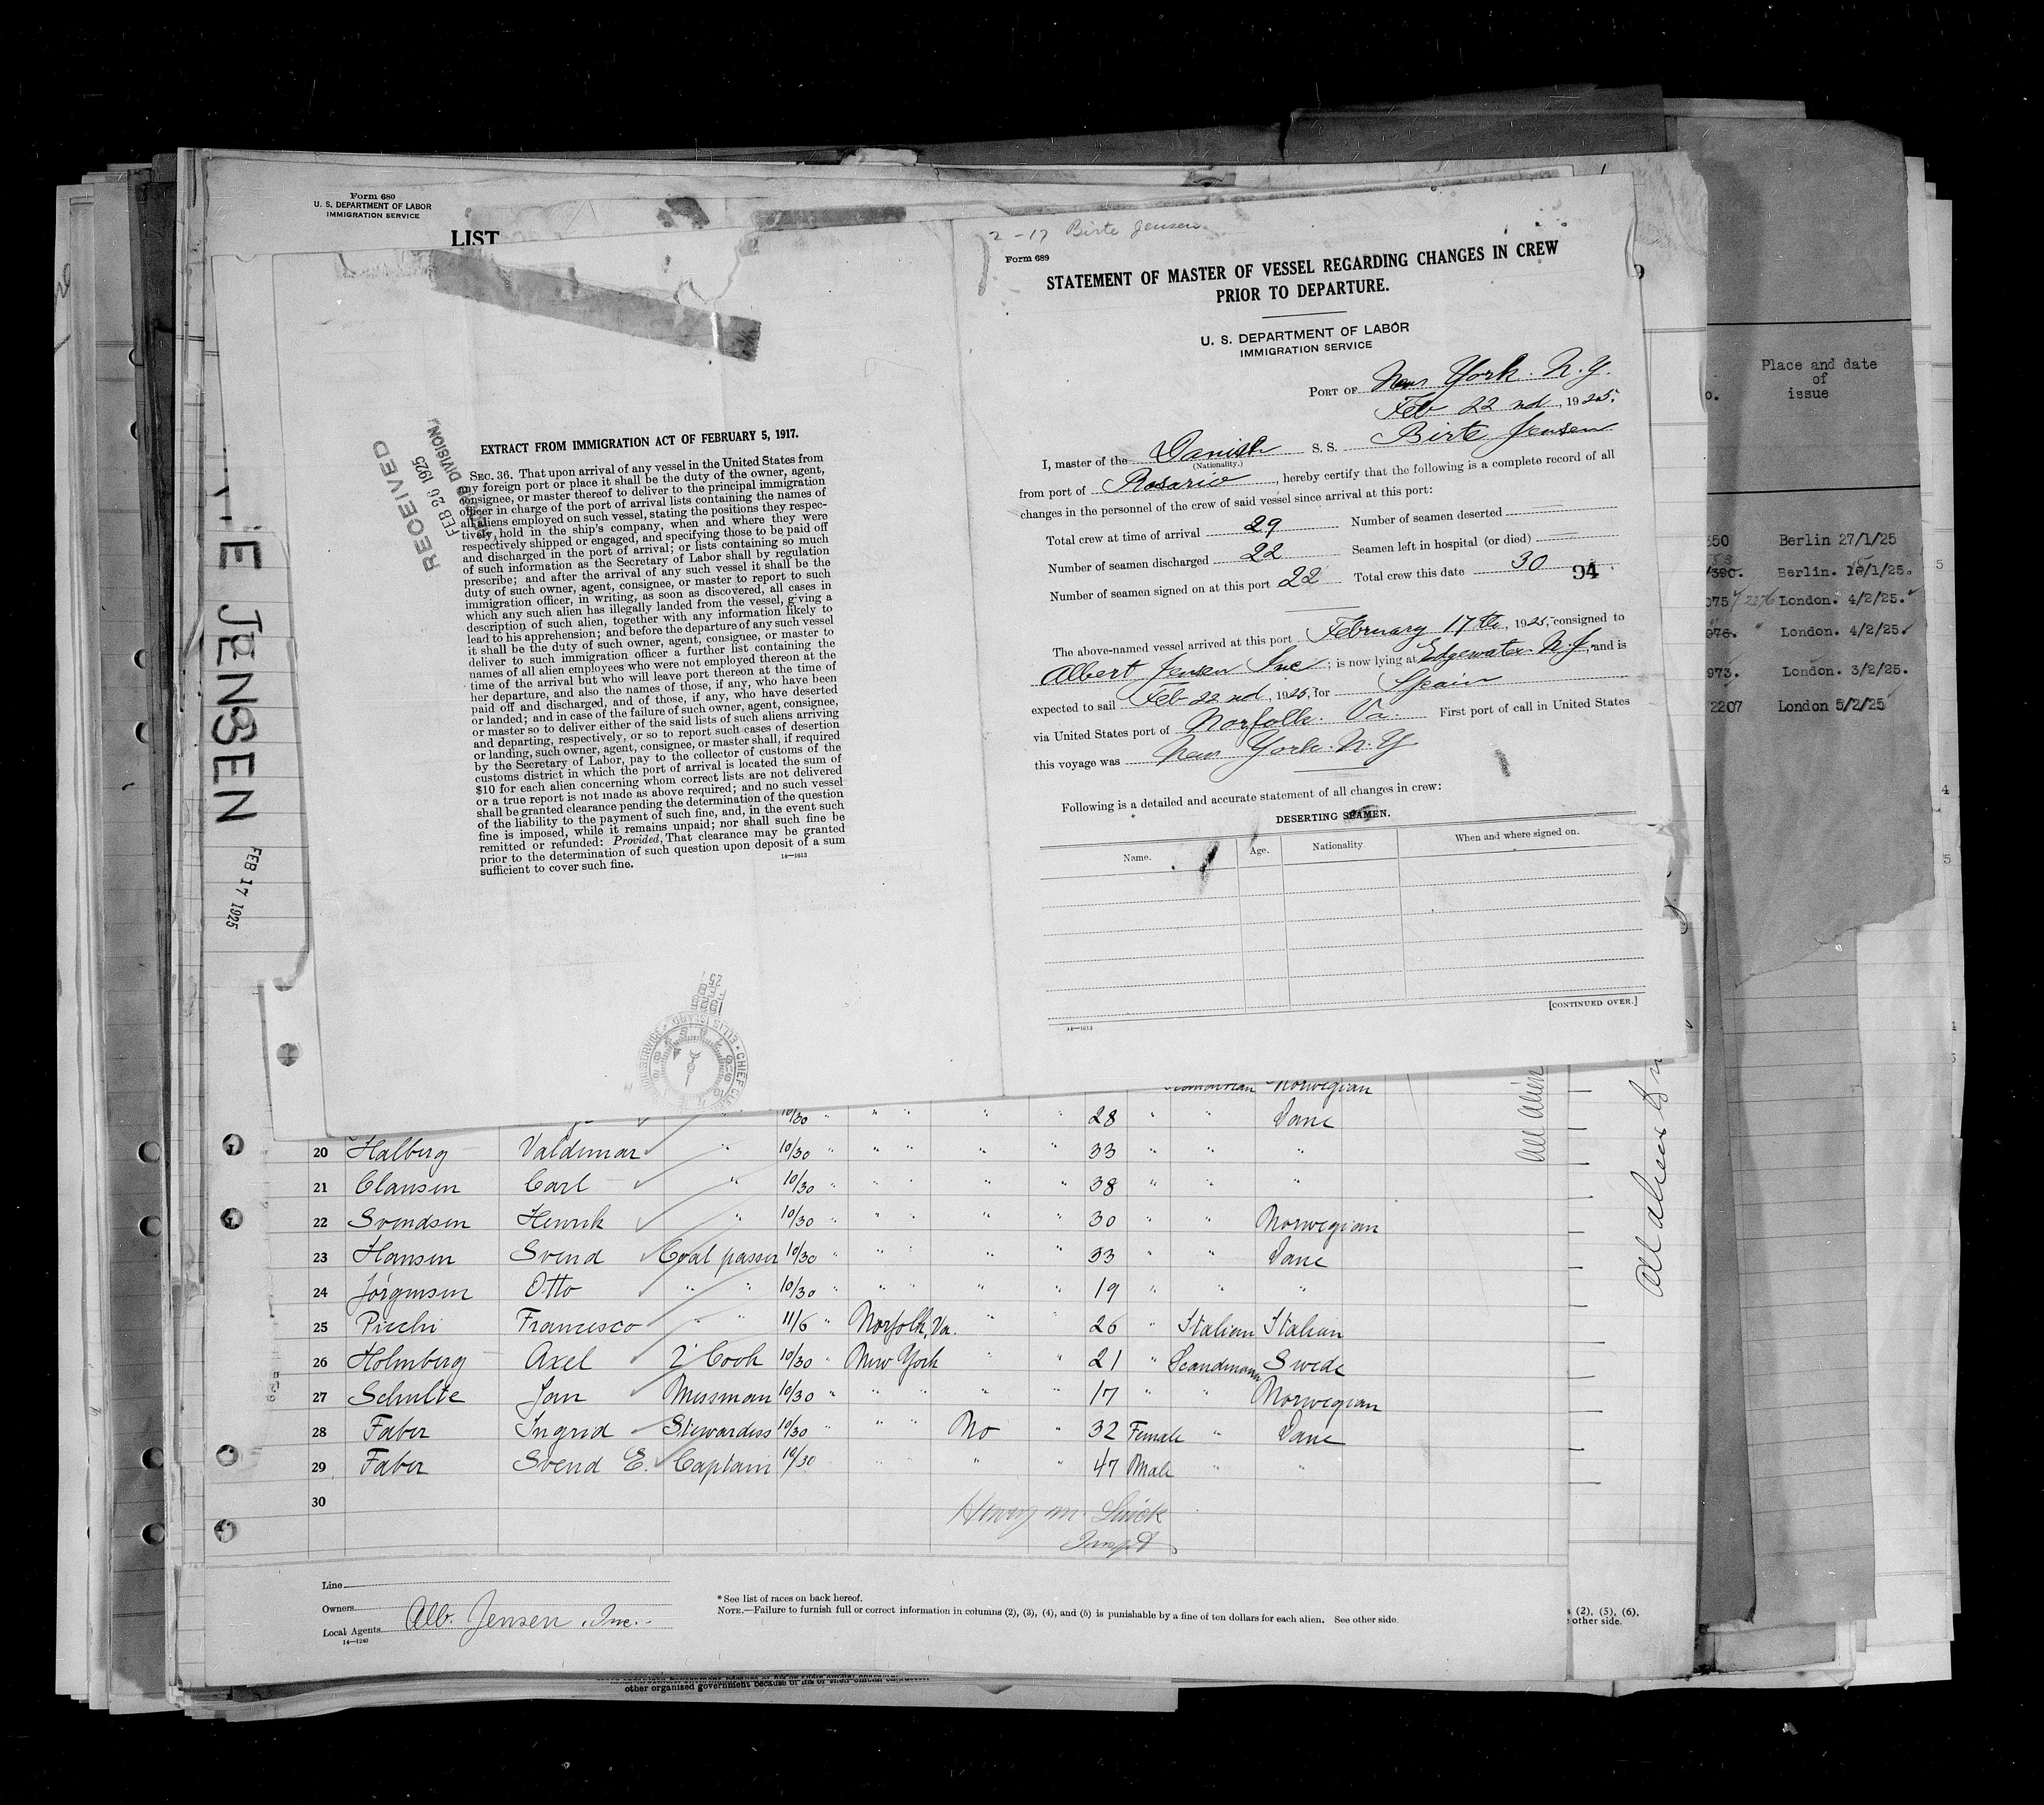 Form 680
U. S. DEPARTMENT OF LABOR
IMMIGRATION SERVICE
LIST
RECEIVED
FEB 26 1925
DIVISION
E JENSEN
FEB 17 1925
EXTRACT FROM IMMIGRATION ACT OF FEBRUARY 5, 1917.
SEC. 36. That upon arrival of any vessel in the United States from
any foreign port or place it shall be the duty of the owner, agent,
consignee, or master thereof to deliver to the principal immigration
officer in charge of the port of arrival lists containing the names of
all aliens employed on such vessel, stating the positions they respec-
tively hold in the ship's company, when and where they were
respectively shipped or engaged, and specifying those to be paid off
and discharged in the port of arrival; or lists containing so much
of such information as the Secretary of Labor shall by regulation
prescribe; and after the arrival of any such vessel it shall be the
duty of such owner, agent, consignee, or master to report to such
immigration officer, in writing, as soon as discovered, all cases in
which any such alien has illegally landed from the vessel, giving a
description of such alien, together with any information likely to
lead to his apprehension; and before the departure of any such vessel
it shall be the duty of such owner, agent, consignee, or master to
deliver to such immigration officer a further list containing the
names of all alien employees who were not employed thereon at the
time of the arrival but who will leave port thereon at the time of
her departure, and also the names of those, if any, who have been
paid off and discharged, and of those, if any, who have deserted
or landed; and in case of the failure of such owner, agent, consignee,
or master so to deliver either of the said lists of such aliens arriving
and departing, respectively, or so to report such cases of desertion
or landing, such owner, agent, consignee, or master shall, if required
by the Secretary of Labor, pay to the collector of customs of the
customs district in which the port of arrival is located the sum of
$10 for each alien concerning whom correct lists are not delivered
or a true report is not made as above required; and no such vessel
shall be granted clearance pending the determination of the question
of the liability to the payment of such fine, and, in the event such
fine is imposed, while it remains unpaid; nor shall such fine be
remitted or refunded: Provided, That clearance may be granted
prior to the determination of such question upon deposit of a sum
sufficient to cover such fine.
14—1613
2-17 Birte Jensen
Form 689
STATEMENT OF MASTER OF VESSEL REGARDING CHANGES IN CREW
PRIOR TO DEPARTURE.
U. S. DEPARTMENT OF LABOR
IMMIGRATION SERVICE
PORT OF New York. N.Y.
Feb 22nd, 1925.
I, master of the Danish S. S. Birte Jensen
(Nationality.)
from port of Rosario, hereby certify that the following is a complete record of all
changes in the personnel of the crew of said vessel since arrival at this port:
Total crew at time of arrival 29 Number of seamen deserted
Number of seamen discharged 22 Seamen left in hospital (or died)
Number of seamen signed on at this port 22 Total crew this date 30
94
The above-named vessel arrived at this port February 17th, 1925, consigned to
Albert Jensen Inc; is now lying at Edgewater N.J, and is
expected to sail Feb 22nd, 1925, for Spain
via United States port of Norfolk. Va. First port of call in United States
this voyage was New York. N.Y
Following is a detailed and accurate statement of all changes in crew:
DESERTING SEAMEN.
Name. Age. Nationality When and where signed on.
[CONTINUED OVER.]
14—1613
Place and date
of
issue
Berlin 27/1/25
Berlin. 1/25.
London. 4/2/25.
London. 4/2/25.
973. London. 3/2/25.
2207 London 5/2/25
Norwegian
10/30 " " " " " 28 " " Dane
20 Halberg Valdemar " 10/30 " " " " " 33 " " "
21 Clausen Carl " 10/30 " " " " " 38 " " "
22 Svendsen Henrik " 10/30 " " " " " 30 " " Norwegian
23 Hansen Svend Coal passer 10/30 " " " " " 33 " " Dane
24 Jørgensen Otto " " 10/30 " " " " " 19 " " "
25 Picchi Francesco " " 11/6 " Norfolk, Va. " " 26 " Italian Italian
26 Holmberg Axel 2' Cook 10/30 " New York " " 21 " Scandinavian Swede
27 Schulte Jan Messman 10/30 " " " " " 17 " " Norwegian
28 Faber Ingrid Stewardess 10/30 " " " No " 32 Female " Dane
29 Faber Svend E. Captain 10/30 " " " " 47 Male " "
30
All Alien
Line
Owners
Local Agents Alb. Jensen, Inc.
14—1240
* See list of races on back hereof.
NOTE.—Failure to furnish full or correct information in columns (2), (3), (4), and (5) is punishable by a fine of ten dollars for each alien. See other side.
(2), (5), (6).
other side.